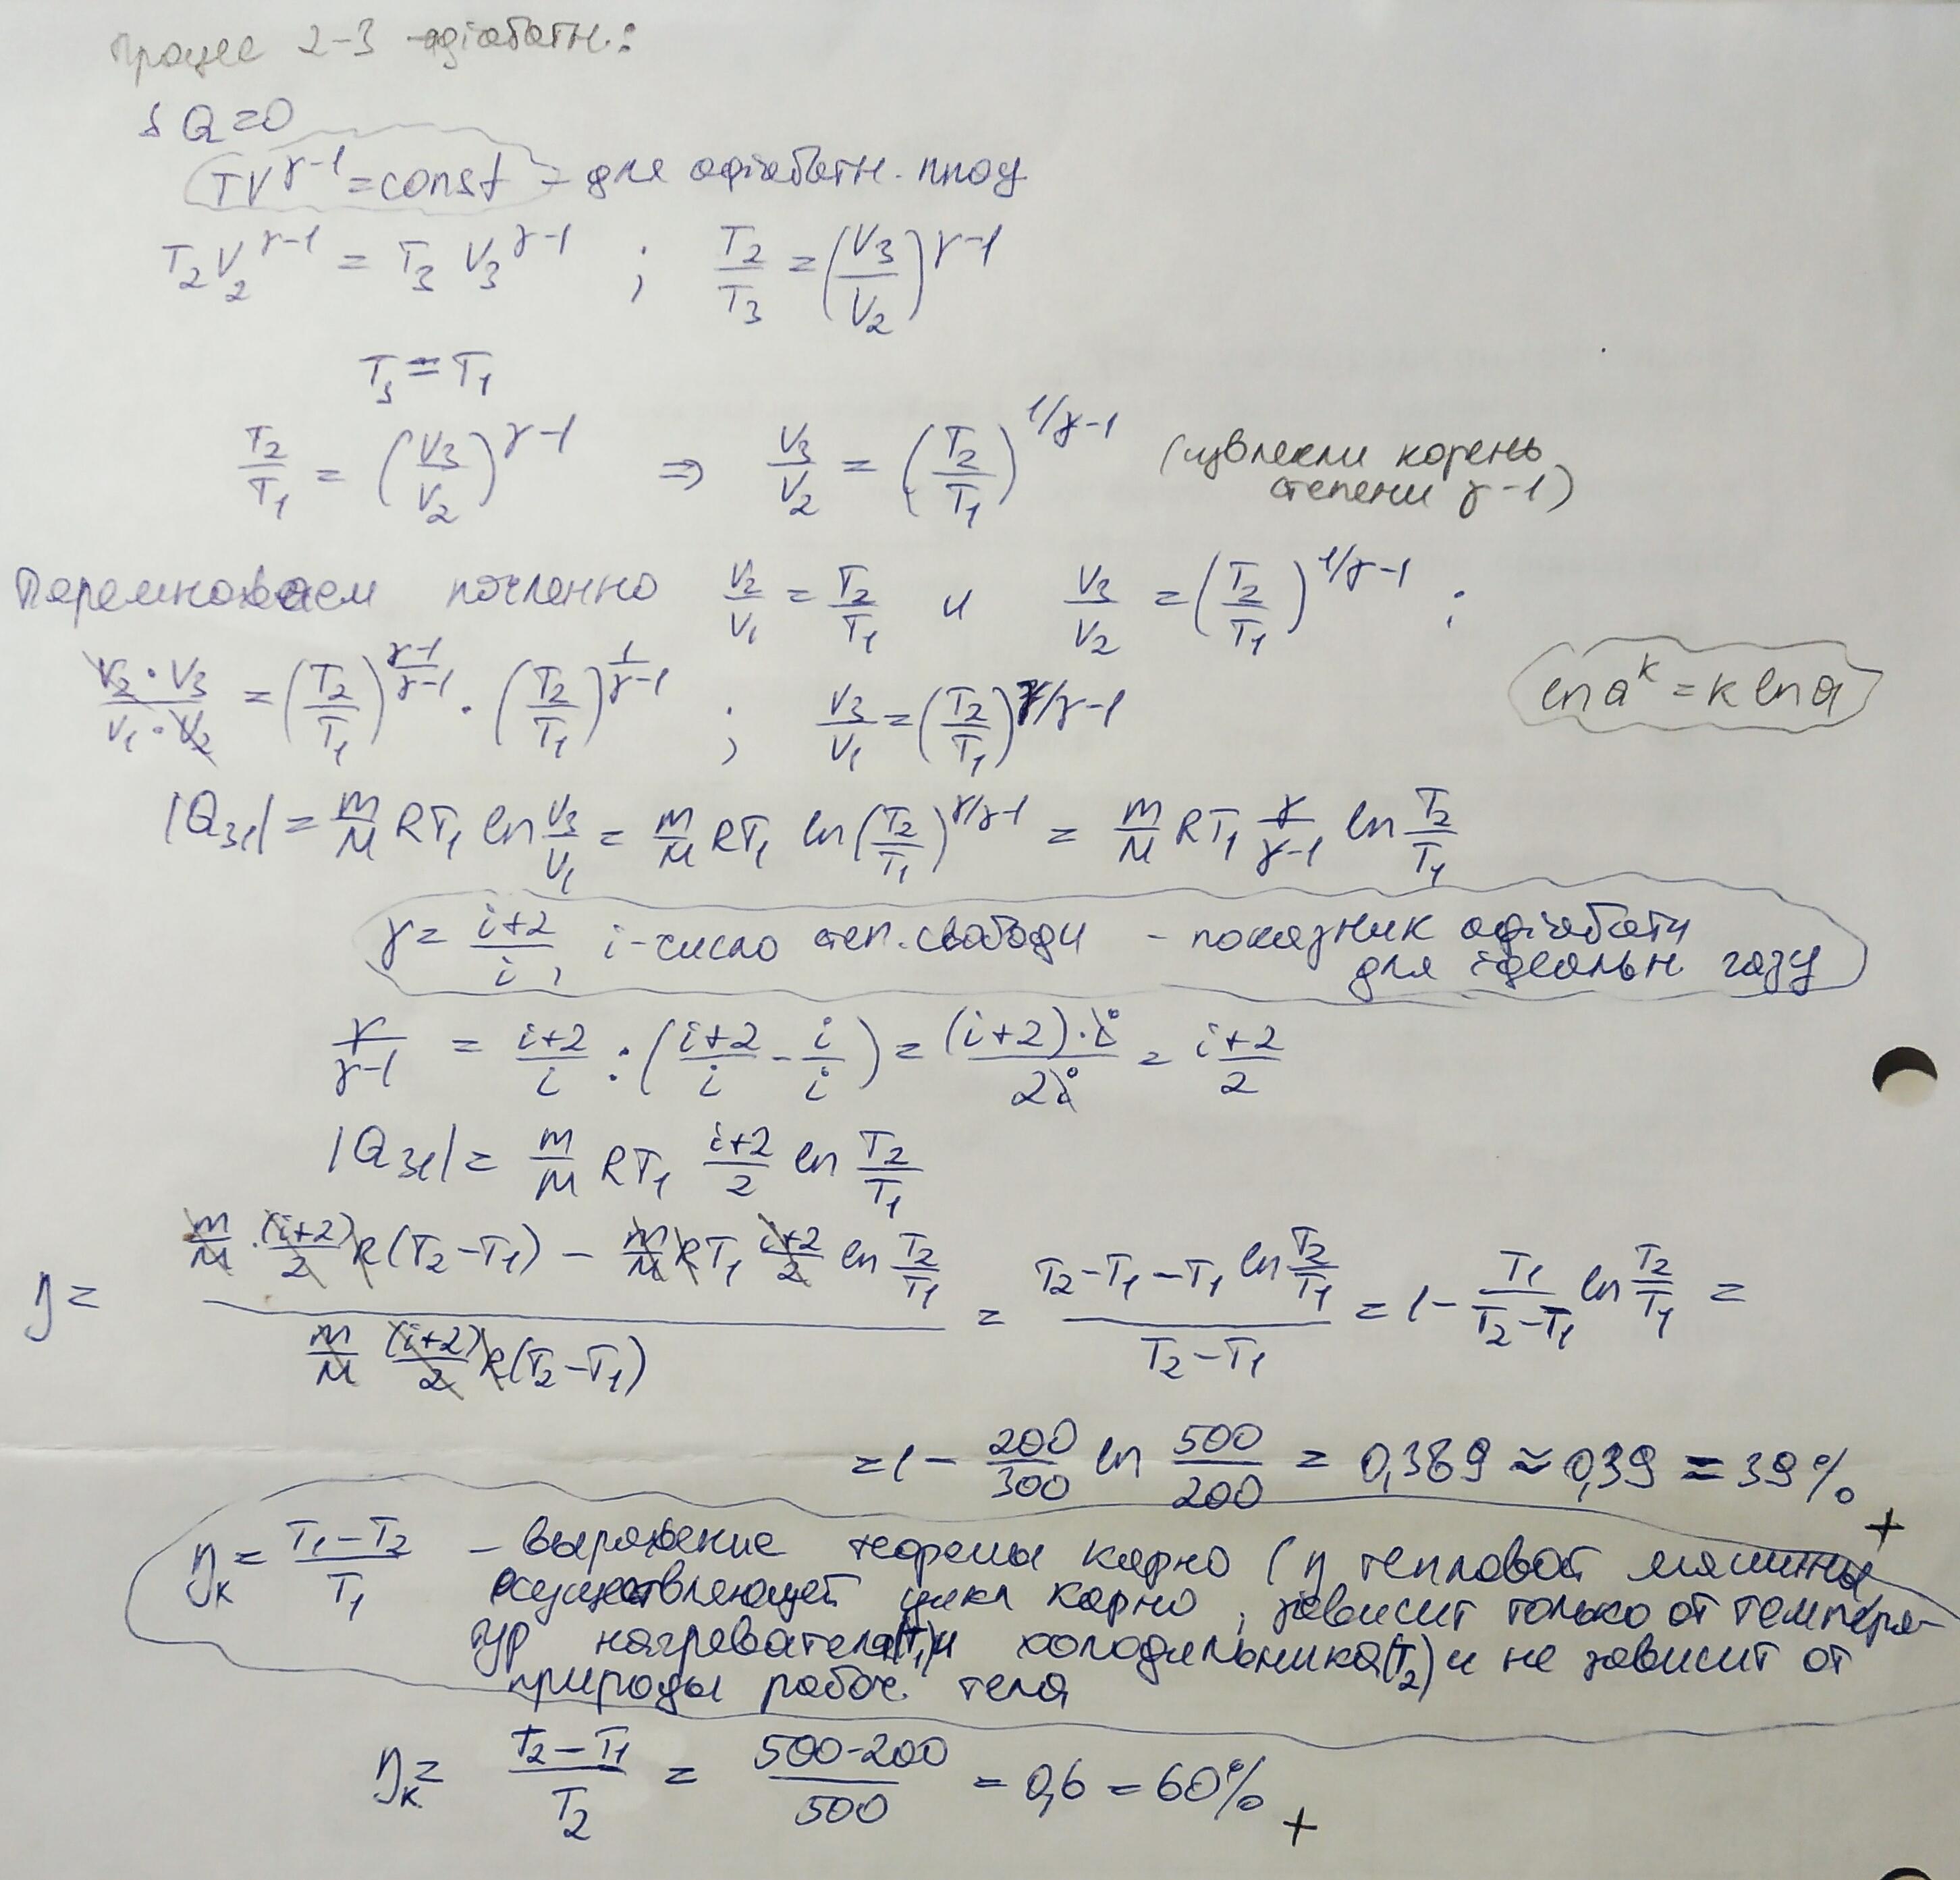 Процес 2-3 адіабатн.:
δQ=0
TV^(γ-1) = const - для адіабатн. процу
T₂V₂^(γ-1) = T₃ V₃^(γ-1) ; T₂/T₃ = (V₃/V₂)^(γ-1)
T₃ = T₁
T₂/T₁ = (V₃/V₂)^(γ-1) ⇒ V₃/V₂ = (T₂/T₁)^(1/γ-1) (извлекли корень
степени γ-1)
Перемножаем почленно V₂/V₁ = T₂/T₁ и V₃/V₂ = (T₂/T₁)^(1/γ-1) ;
V₂·V₃/V₁·V₂ = (T₂/T₁)^(γ-1/γ-1) · (T₂/T₁)^(1/γ-1) ; V₃/V₁ = (T₂/T₁)^(γ/γ-1)
ln a^k = k ln a
|Q₃₁| = m/M RT₁ ln V₃/V₁ = m/M RT₁ ln (T₂/T₁)^(γ/γ-1) = m/M RT₁ γ/γ-1 ln T₂/T₁
γ = i+2/i , i-число степ. свободи - показник адіабати
для ідеальн газу
γ/γ-1 = i+2/i : (i+2/i - i/i) = (i+2)·i/2i = i+2/2
|Q₃₁| = m/M RT₁ i+2/2 ln T₂/T₁
η = m/M·(i+2)/2 R(T₂-T₁) - m/M RT₁ i+2/2 ln T₂/T₁ / m/M (i+2)/2 R(T₂-T₁) = T₂-T₁-T₁ ln T₂/T₁ / T₂-T₁ = 1 - T₁/T₂-T₁ ln T₂/T₁ =
= 1 - 200/300 ln 500/200 = 0,389 ≈ 0,39 = 39% +
ηк = T₁-T₂/T₁ - выражение теоремы карно (η тепловой машины
осуществляющей цикл карно, зависит только от темпера-
тур нагревателя(T₁)и холодильника(T₂) и не зависит от
природы рабоч. тела
ηк = T₂-T₁/T₂ = 500-200/500 = 0,6 = 60% +